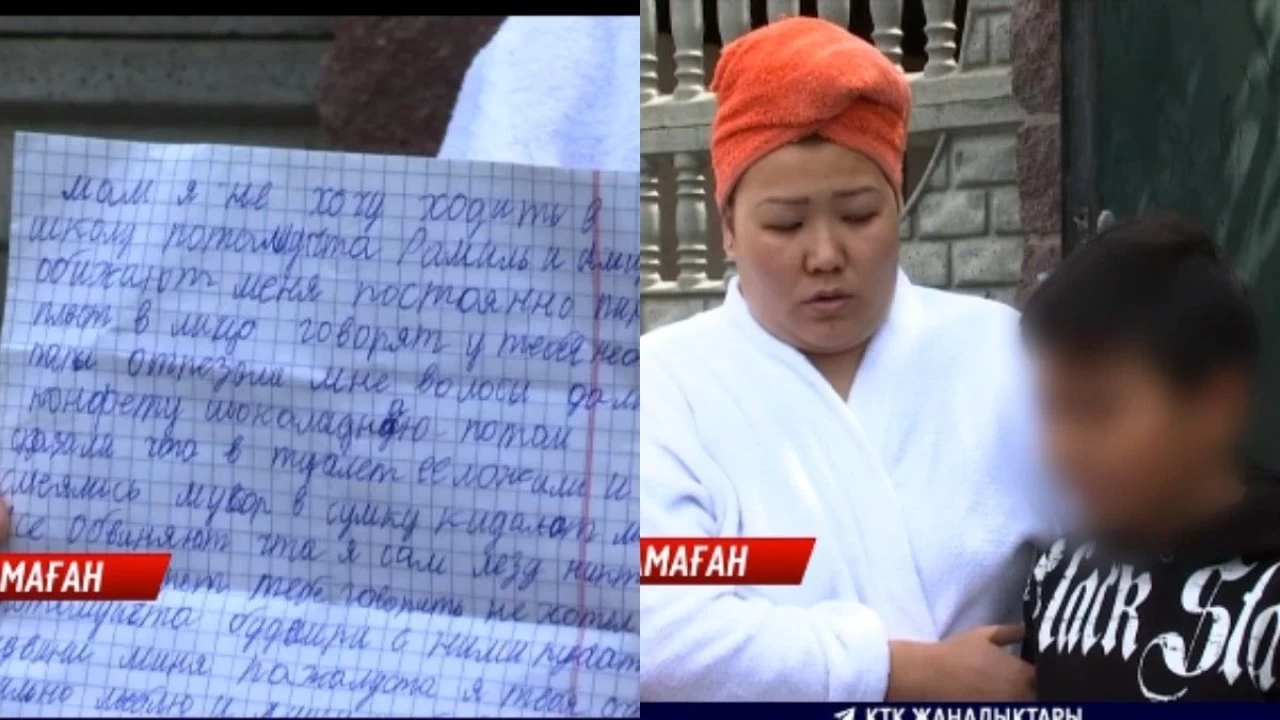 мам я не хочу ходить в
школу потамушта Рамиль и
обижают меня постоянно
плюют в лицо говорят у тебя
папы отрезали мне волосы дали
конфету шоколадную потом
сказали что в туалет ее ложили и
смеялись мусор в сумку кидают
все обвиняют что я сам лезу
тебе говорить не хотел
потамушта с ними
миня пожалуста я тебя
сильно люблю и
МАҒАН
МАҒАН
Black Sta
КТК ЖАҢАЛЫҚТАРЫ